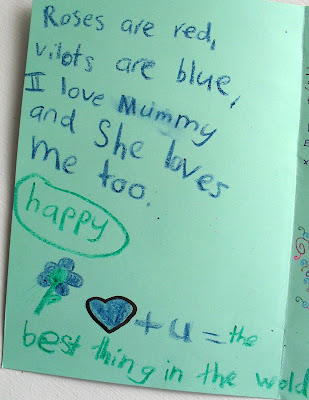 Roses are red,
vilots are blue,
I love Mummy
and She loves
me too.
happy
+ u = the
best thing in the wold